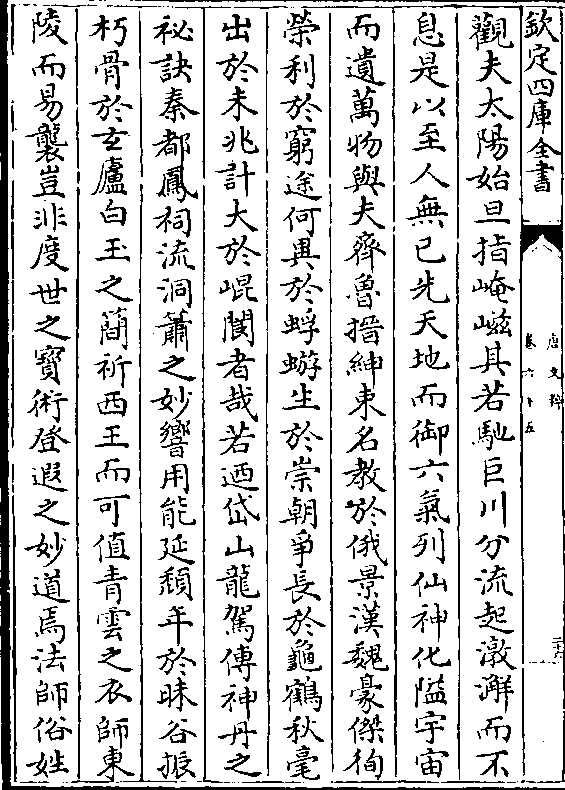 欽定四庫全書
唐文粹
卷六十五
二十六
觀夫太陽始旦指崦嵫其若馳巨川分流起瀓澥而不
息是以至人無已先天地而御六氣列仙神化隘宇宙
而遺萬物與夫齊魯搢紳束名教於俄景漢魏豪傑徇
榮利於窮途何異於蜉蝣生於崇朝爭長於龜鶴秋毫
出於未兆計大於崐閬者哉若迺岱山龍駕傳神丹之
祕訣秦都鳳祠流洞簫之妙響用能延頹年於昧谷振
朽骨於玄廬白玉之蕳祈西王而可值青雲之衣師東
陵而易襲豈非度世之寶術登遐之妙道焉法師俗姓